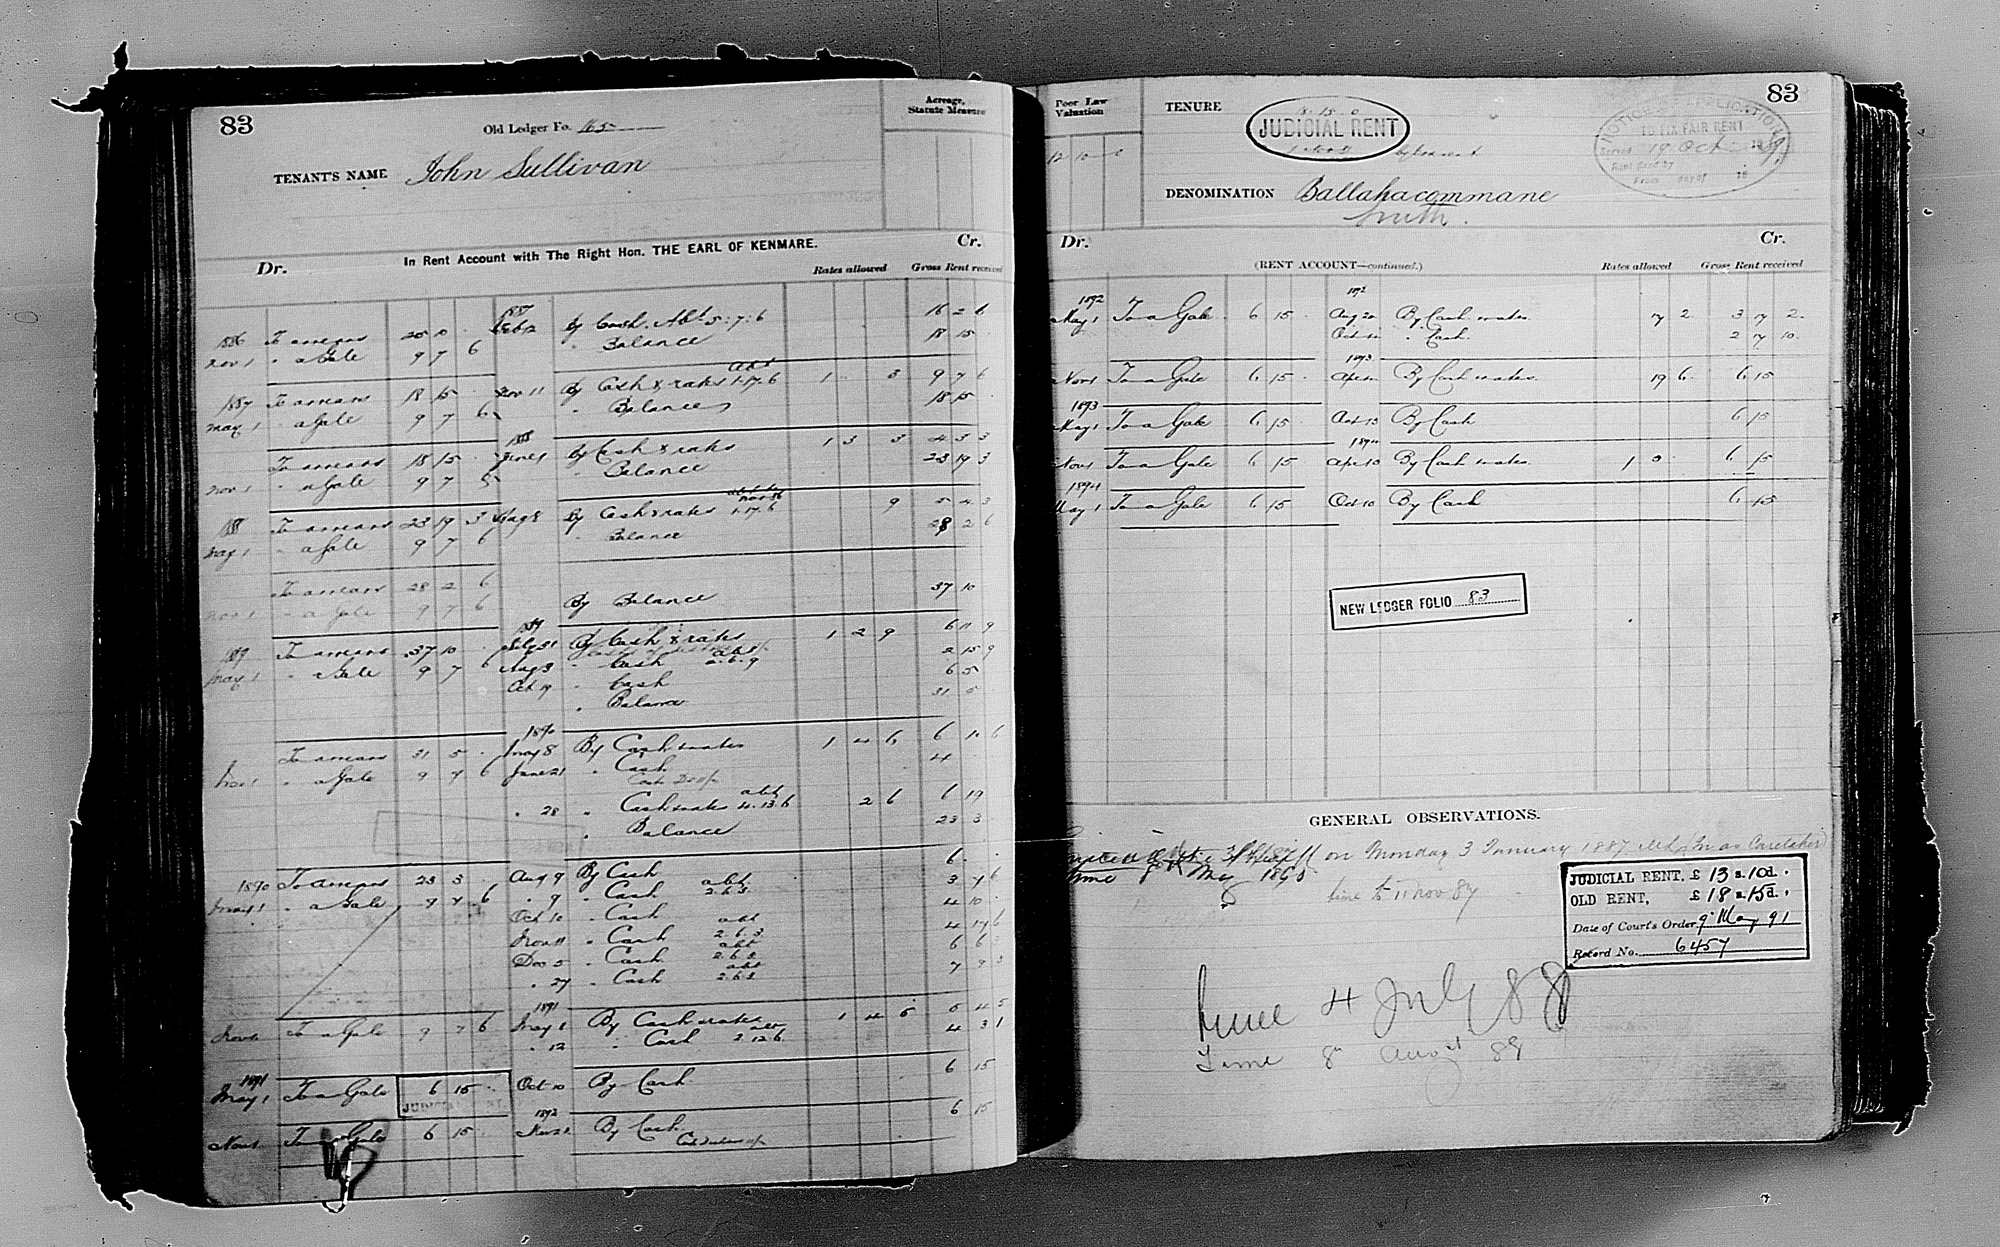 83
Old Ledger Fo. 165
Acreage,
Statute Measure
TENANT'S NAME John Sullivan
In Rent Account with The Right Hon. THE EARL OF KENMARE.
Dr. Cr.
Rates allowed Gross Rent received
1887
1886 To arrears 28 10 Feb 12 By Cash. Abt. 5:7:6 16 2 6
Nov 1 " a Gale 9 7 6 " Balance 18 15
abt
1887 To arrears 18 15 Nov 11 By Cash & rates 1.17.6 1 3 9 7 6
May 1 " a Gale 9 7 6 " Balance 18 15
1888
To arrears 18 15 June 1 By Cash & rates 1 3 3 4 3 3
Nov 1 " a Gale 9 7 6 " Balance 23 19 3
1888 To arrears 23 19 3 Aug 8 By Cash & rates 1.17.6 9 5 4 3
May 1 " a Gale 9 7 6 " Balance 28 2 6
To arrears 28 2 6
Nov 1 " a Gale 9 7 6 By Balance 37 10
1889
1889 To arrears 37 10 July 31 By Cash & rates 1 2 9 6 11 9
May 1 " a Gale 9 7 6 Aug 3 " Cash abt 2.6.9 2 15 9
Oct 19 " Cash 6 5
" Balance 31 5
1890
To arrears 31 5 May 8 By Cash & rates 1 4 6 6 10 6
Nov 1 " a Gale 9 7 6 June 21 " Cash 4
" 28 " Cash & rates abt 4.13.6 2 6 6 19
" Balance 23 3
1890 To arrears 23 3 Aug 9 By Cash 6
May 1 " a Gale 9 7 6 " 9 " Cash abt 2.6.3 3 7 6
Oct 10 " Cash 4 10
Nov 11 " Cash abt 2.6.3 4 17 6
Dec 5 " Cash abt 2.6.3 6 6 3
" 27 " Cash abt 2.6.3 7 9 3
1891
Nov 1 To a Gale 9 7 6 May 8 By Cash & rates 1 4 5 5 4 5
" 12 " Cash abt 2.12.6 4 3 1
1891
May 1 To a Gale 6 15 Oct 10 By Cash 6 15
JUDICIAL
1892
Nov 1 To a Gale 6 15 By Cash 6 15
83
Poor Law
Valuation
12 10
TENURE
JUDICIAL RENT
NOTICE OF APPLICATION
TO FIX FAIR RENT
Served 19 Oct 18
Rent
From day of 18
DENOMINATION Ballahacommane
South.
Dr. Cr.
(RENT ACCOUNT—continued.)
Rates allowed Gross Rent received
1892 1892
May 1 To a Gale 6 15 Aug 20 By Cash & rates 17 2 3 17 2
Oct " Cash 2 17 10
1893
Nov 1 To a Gale 6 15 Apr By Cash & rates 19 6 6 15
1893
May 1 To a Gale 6 15 Oct 13 By Cash 6 15
1894
Nov 1 To a Gale 6 15 Apr 10 By Cash & rates 1 0 6 15
1894
May 1 To a Gale 6 15 Oct 10 By Cash 6 15
NEW LEDGER FOLIO 83
GENERAL OBSERVATIONS.
on Monday 3 January 1887 (In as Caretaker)
time May 1890
time to 11 Nov 87
JUDICIAL RENT, £ 13 s. 10 d.
OLD RENT, £ 18 s. 15 d.
Date of Court's Order, 9 May 91
Record No. 6457
4 July 88
Time 8 August 89